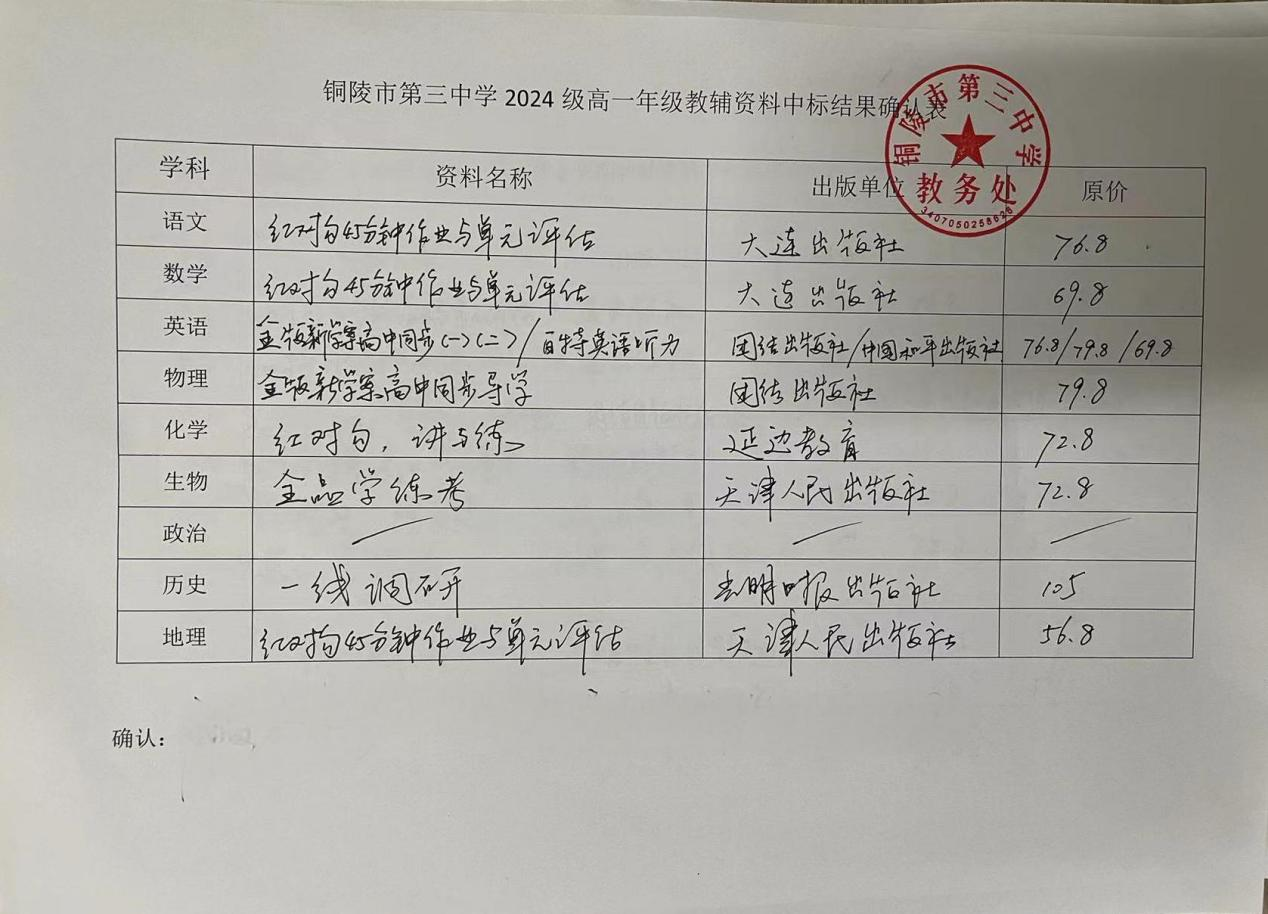 铜陵市第三中学 2024 级高一年级教辅资料中标结果确认表
铜陵市第三中学
教务处
3407050258626
学科 资料名称 出版单位 原价
语文 红对勾45分钟作业与单元评估 大连出版社 76.8
数学 红对勾45分钟作业与单元评估 大连出版社 69.8
英语 金版新学案高中同步(一)(二)/百特英语听力 团结出版社/中国和平出版社 76.8/79.8/69.8
物理 金版新学案高中同步导学 团结出版社 79.8
化学 红对勾,讲与练 延边教育 72.8
生物 全品学练考 天津人民出版社 72.8
政治 — — —
历史 一线调研 光明日报出版社 105
地理 红对勾45分钟作业与单元评估 天津人民出版社 56.8
确认：